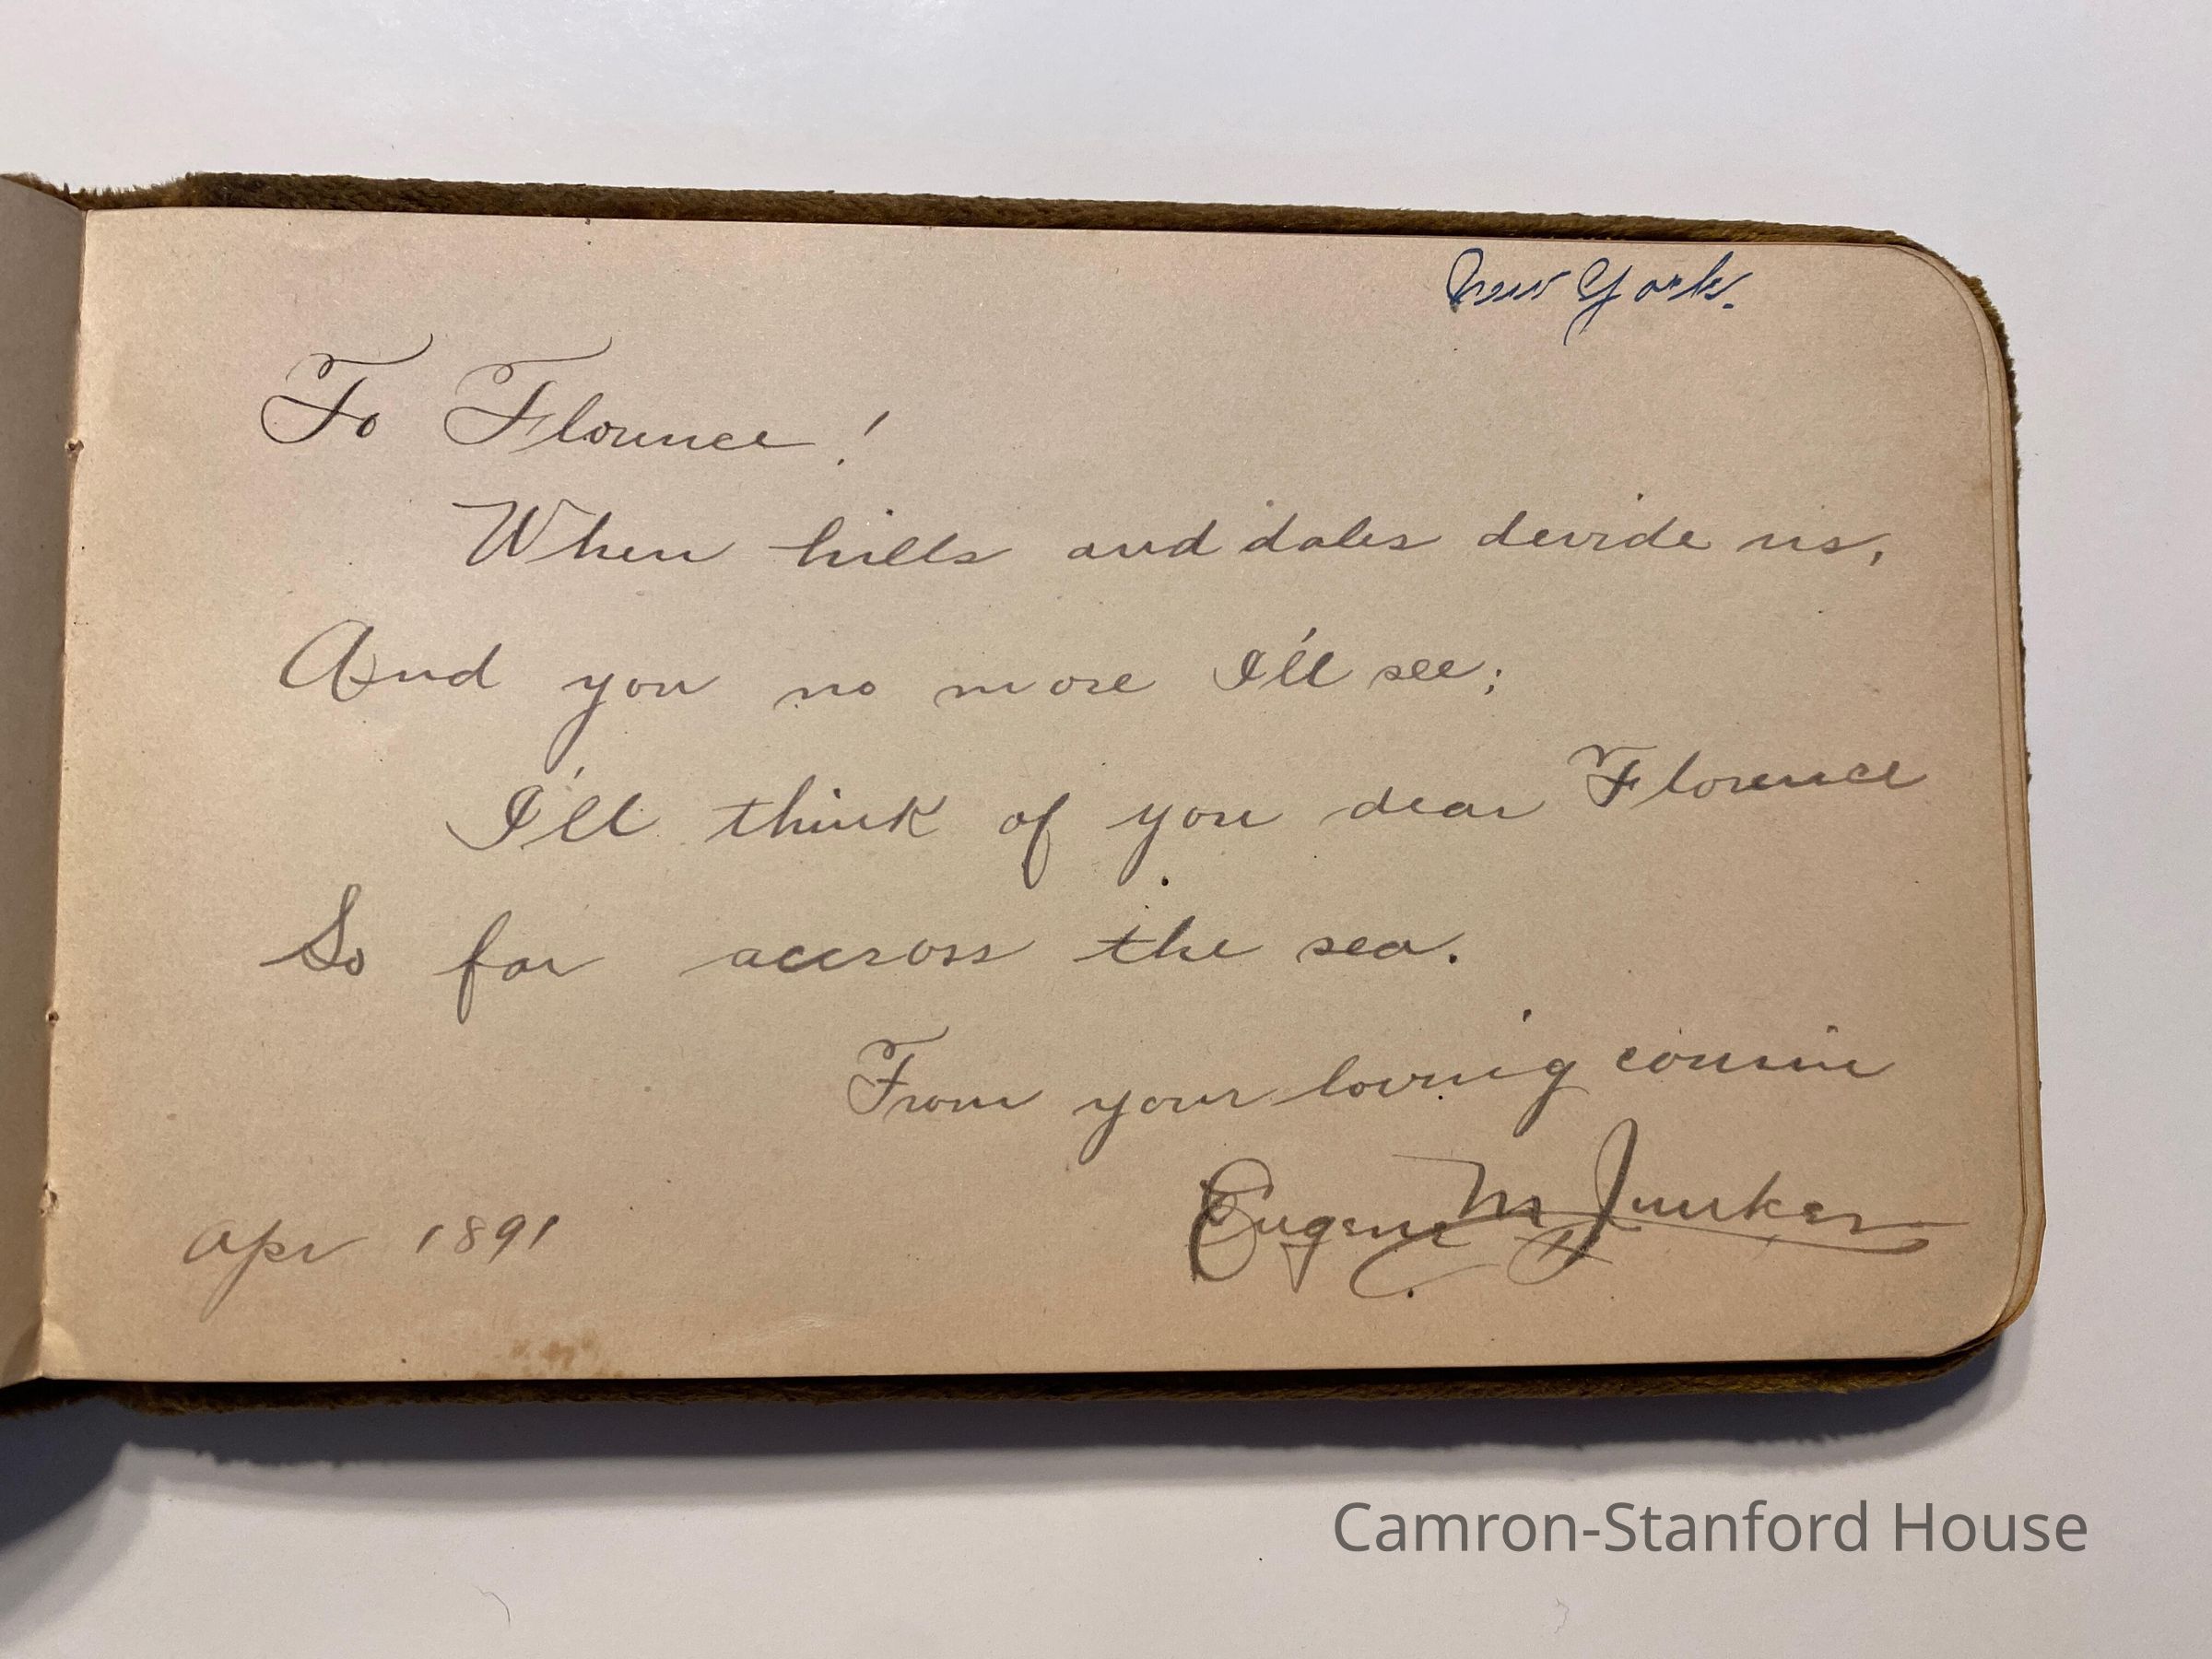 New York.
To Florence!
When hills and dales devide us,
And you no more I'll see;
I'll think of you dear Florence
So far accross the sea.
From your loving cousin
Eugene M Junker
Apr 1891
Camron-Stanford House